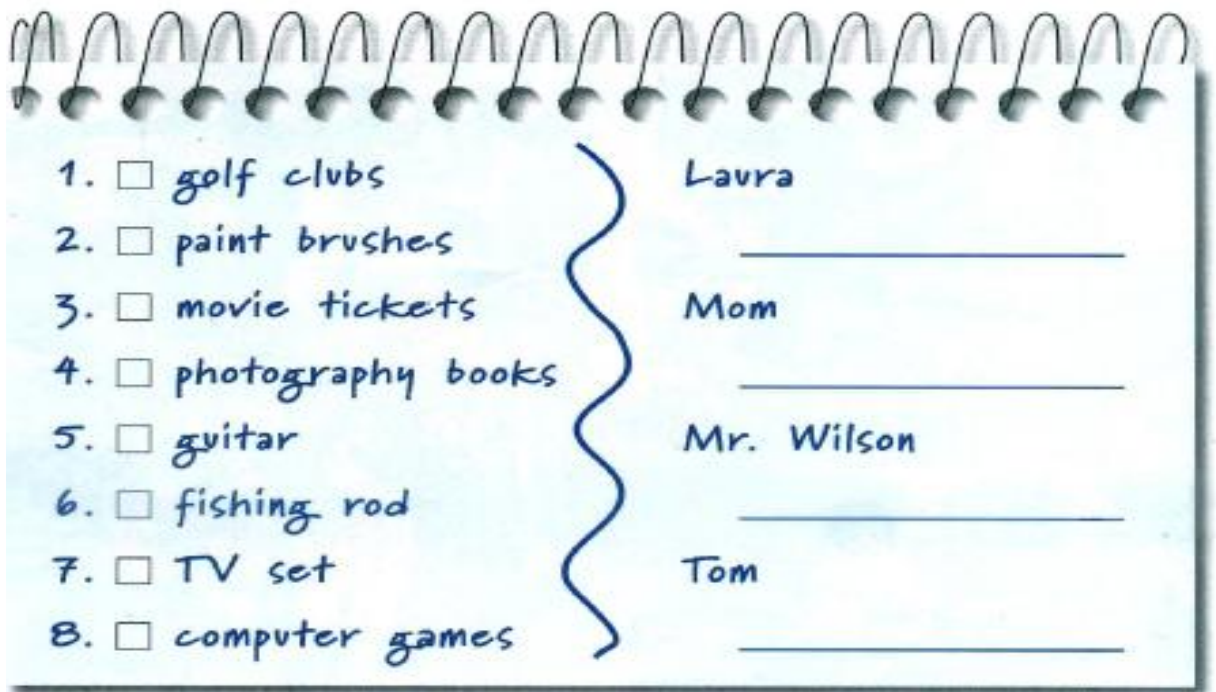 1. golf clubs
2. paint brushes
3. movie tickets
4. photography books
5. guitar
6. fishing rod
7. TV set
8. computer games
Laura
Mom
Mr. Wilson
Tom